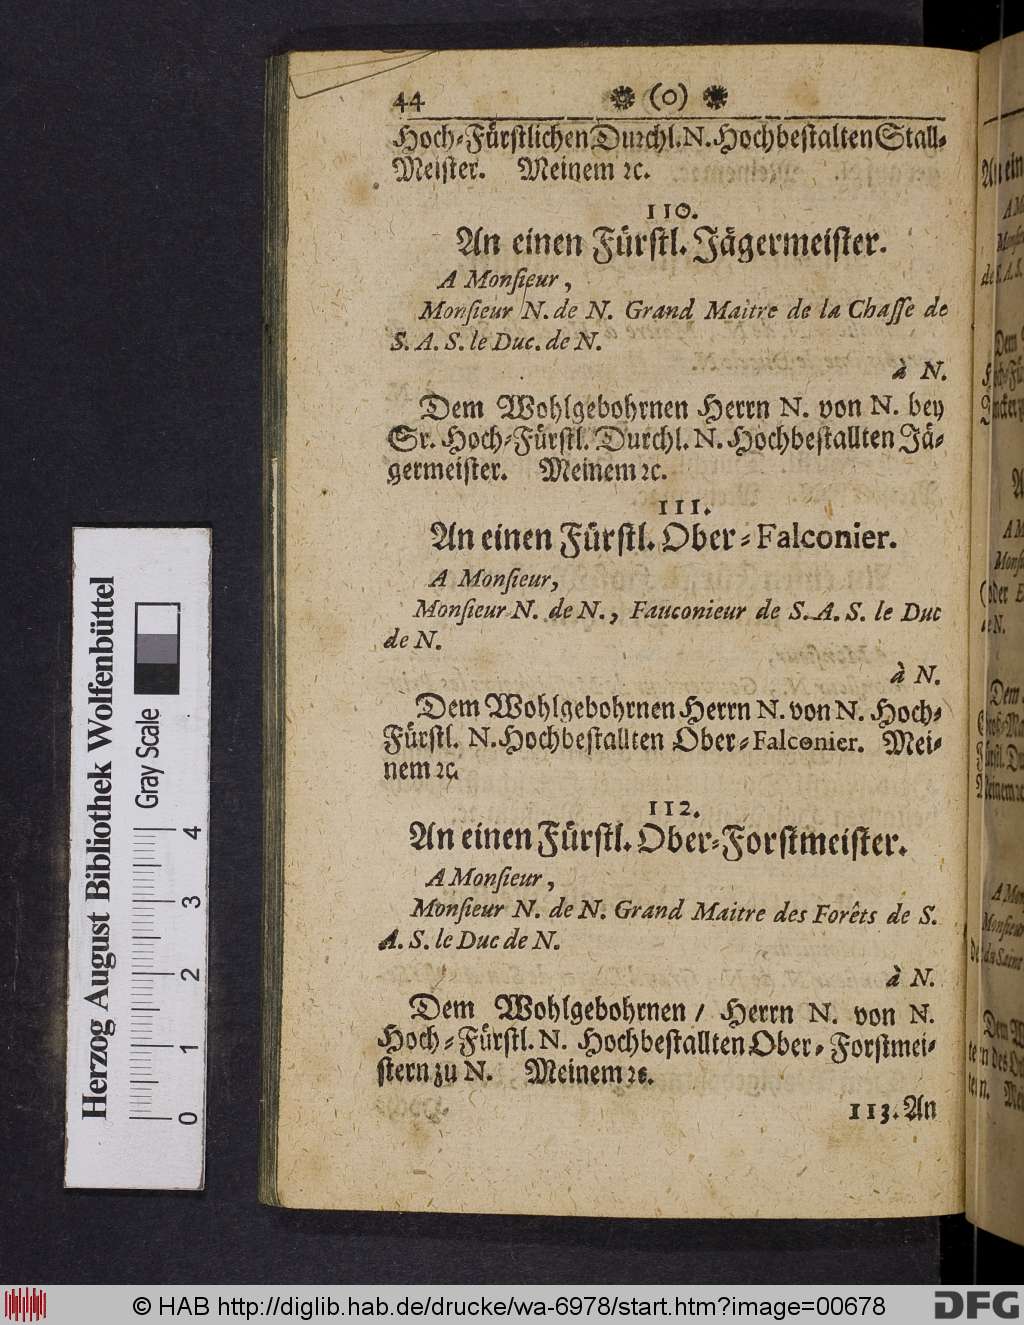 44 (0)
Hoch-Fürstlichen Durchl. N. Hochbestalten Stall-
Meister. Meinem ꝛc.
110.
An einen Fürstl. Jägermeister.
A Monſieur,
Monſieur N. de N. Grand Maitre de la Chaſſe de
S. A. S. le Duc. de N.
à N.
Dem Wohlgebohrnen Herrn N. von N. bey
Sr. Hoch-Fürstl. Durchl. N. Hochbestallten Jä-
germeister. Meinem ꝛc.
111.
An einen Fürstl. Ober-Falconier.
A Monſieur,
Monſieur N. de N., Fauconieur de S. A. S. le Duc
de N.
à N.
Dem Wohlgebohrnen Herrn N. von N. Hoch-
Fürstl. N. Hochbestallten Ober-Falconier. Mei-
nem ꝛc.
112.
An einen Fürstl. Ober-Forstmeister.
A Monſieur,
Monſieur N. de N. Grand Maitre des Forêts de S.
A. S. le Duc de N.
à N.
Dem Wohlgebohrnen / Herrn N. von N.
Hoch-Fürstl. N. Hochbestallten Ober-Forstmei-
stern zu N. Meinem ꝛc.
113. An
Herzog August Bibliothek Wolfenbüttel
Gray Scale
0 1 2 3 4
© HAB http://diglib.hab.de/drucke/wa-6978/start.htm?image=00678
DFG